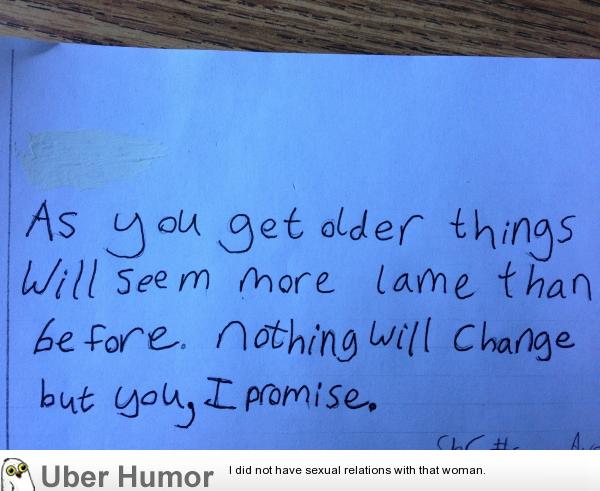 As you get older things
Will seem more lame than
before. nothing will change
but you, I promise.
Uber Humor
I did not have sexual relations with that woman.